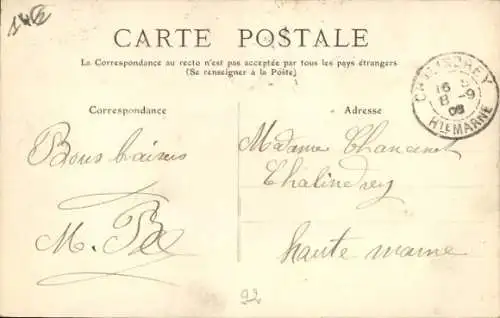 CARTE POSTALE
La Correspondance au recto n'est pas acceptée par tous les pays étrangers
(Se renseigner à la Poste)
Correspondance
Bons baisers
M.
Adresse
Madame
Chalindrey
haute marne
CHALINDREY
16
8 -9
08
HTE MARNE
22